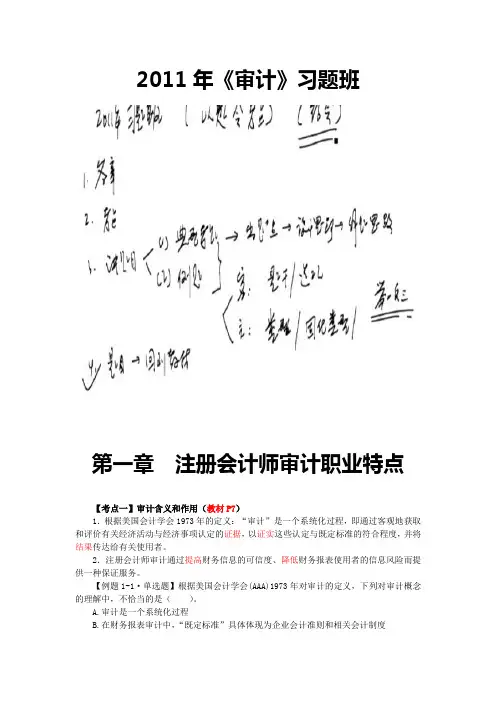 2011年《审计》习题班
2011年习题班 (以题会考点) (结合)
1. 各章
2. 考点
(1)
(2) 例题
客:
主: /
第一章 注册会计师审计职业特点
【考点一】审计含义和作用（教材P7）
1．根据美国会计学会1973年的定义：“审计”是一个系统化过程，即通过客观地获取
和评价有关经济活动与经济事项认定的证据，以证实这些认定与既定标准的符合程度，并将
结果传达给有关使用者。
2．注册会计师审计通过提高财务信息的可信度、降低财务报表使用者的信息风险而提
供一种保证服务。
【例题1-1·单选题】根据美国会计学会(AAA)1973年对审计的定义，下列对审计概念
的理解中，不恰当的是（ ）。
A.审计是一个系统化过程
B.在财务报表审计中，“既定标准”具体体现为企业会计准则和相关会计制度